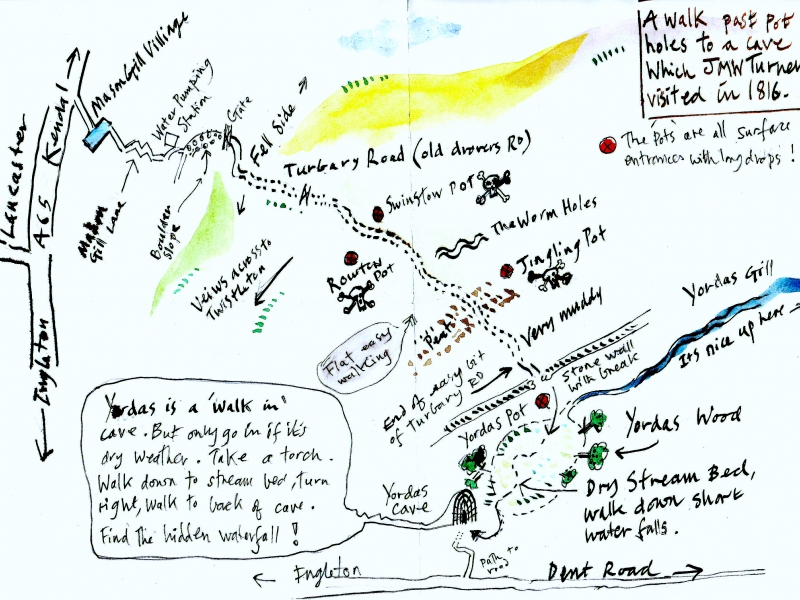 A walk past pot
holes to a cave
Which JMW Turner
visited in 1816.
The 'Pots' are all surface
entrances with long drops !
Lancaster
A65 Kendal
Ingleton
Masongill Village
Water Pumping
Station
Gate
Fell Side
Gill Lane
Boulder
slope
Turbary Road (old drovers RD)
Swinstow Pot
The Worm Holes
Jingling Pot
Rowten
Pot
Veiws across to
Twistleton
Flat easy
walking
'Peat'
Very muddy
Yordas Gill
Its nice up here
Stone wall
with break
End of easy bit
of Turbary RD
Yordas Pot
Yordas Wood
Dry Stream Bed,
walk down short
water falls.
Yordas
Cave
Yordas is a 'walk in'
cave. But only go in if it's
dry weather. Take a torch.
Walk down to stream bed, turn
right, walk to back of cave.
Find the hidden waterfall !
Path to
road
Ingleton
Dent Road